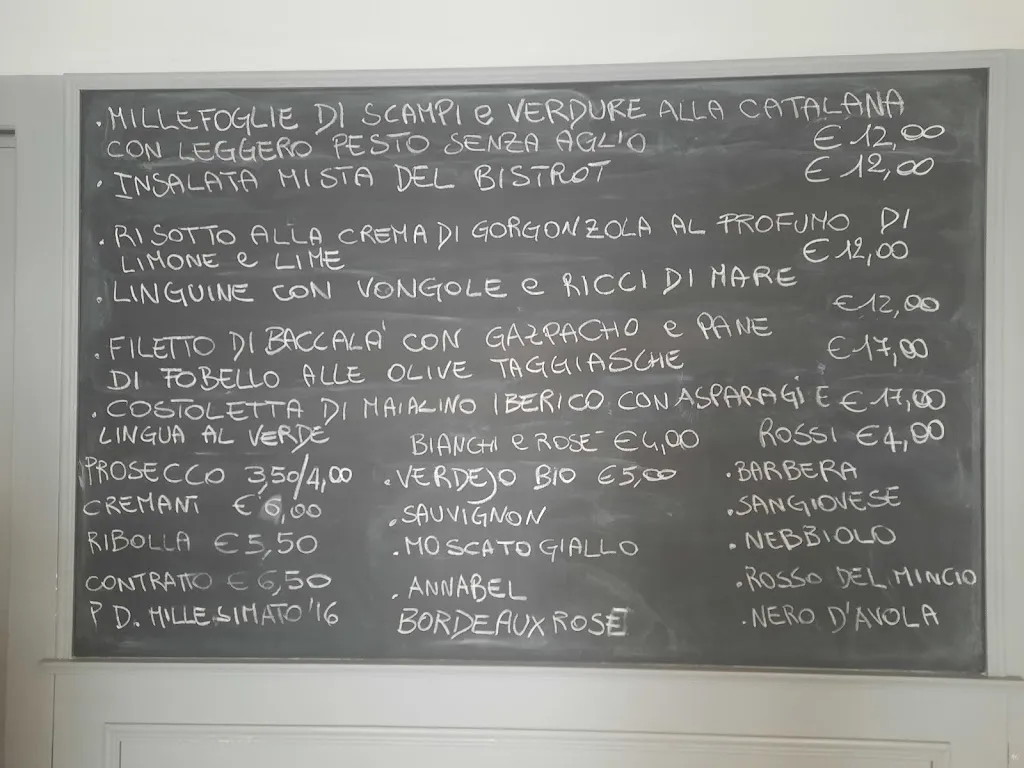 . MILLEFOGLIE DI SCAMPI e VERDURE ALLA CATALANA
CON LEGGERO PESTO SENZA AGLIO € 12,00
. INSALATA MISTA DEL BISTROT € 12,00
. RISOTTO ALLA CREMA DI GORGONZOLA AL PROFUMO DI
LIMONE e LIME € 12,00
. LINGUINE CON VONGOLE e RICCI DI MARE
€ 12,00
. FILETTO DI BACCALA' CON GAZPACHO e PANE € 17,00
DI FOBELLO ALLE OLIVE TAGGIASCHE
. COSTOLETTA DI MAIALINO IBERICO CON ASPARAGI E € 17,00
LINGUA AL VERDE
BIANCHI e ROSE € 4,00
ROSSI € 4,00
PROSECCO 3,50/4,00
CREMANT € 6,00
RIBOLLA € 5,50
CONTRATTO € 6,50
P D. MILLESIMATO '16
. VERDEJO BIO € 5,00
. SAUVIGNON
. MOSCATO GIALLO
. ANNABEL
BORDEAUX ROSE
. BARBERA
. SANGIOVESE
. NEBBIOLO
. ROSSO DEL MINCIO
. NERO D'AVOLA